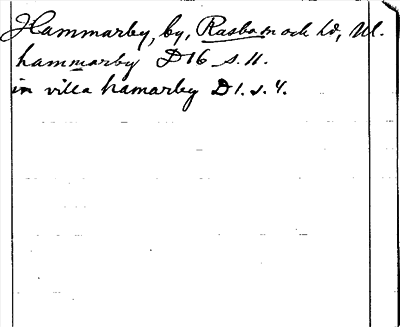 Hammarby, by, Rasbo sn och hd, Upl.
hammarby D16 s. 11.
in villa hamarby D1. s. 4.